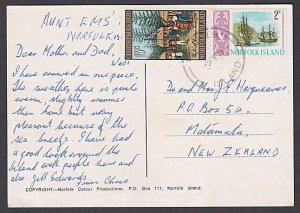 AUNT EMS'
NORFOLK IS.
Dear Mother and Dad,
Well
I have arrived in one piece.
The weather here is quite
warm, slightly warmer
than home but very
pleasant because of the
sea breeze. I have had
a good look around the
Island with people here and
also Jill Edwards.
Love Chris
2c
NORFOLK ISLAND
Dr and Mrs J E Hargreaves
P.O. Box 54,
Matamata,
NEW ZEALAND
COPYRIGHT—Norfolk Colour Productions. P.O. Box 111, Norfolk Island.